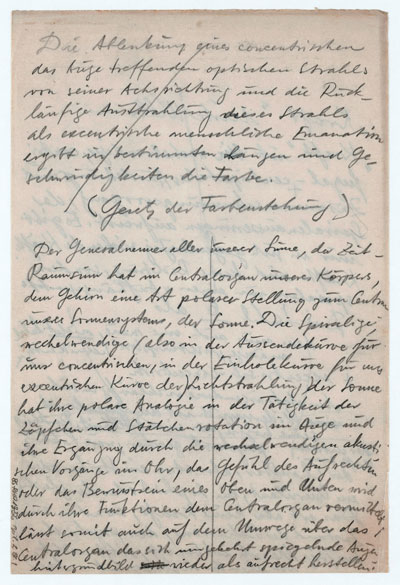 Die Ablenkung eines concentrischen
das Auge treffenden optischen Strahls
von seiner Achsrichtung und die Rück-
läufige Ausstrahlung dieses Strahls
als excentrische menschliche Emanation
ergibt in bestimmten Längen und Ge-
schwindigkeiten die Farbe.
(Gesetz der Farbenstehung)
Der Generalnenner aller unserer Sinne, der Zeit-
Raumsinn hat im Centralorgan unseres Körpers,
dem Gehirn eine Art polarer Stellung zum Centrum
unseres Sonnensystems, der Sonne. Die Spiralige,
wechselwendige (also in der Aussendekurve für
uns concentrischen, in der Einholekurve für uns
excentrischen Kurve der Lichtstrahlung) der Sonne
hat ihre polare Analogie in der Tätigkeit der
Zäpfchen und Stäbchenrotation im Auge und
ihre Ergänzung durch die wechselwendigen akusti-
schen Vorgänge im Ohr, das Gefühl des Aufrechten
oder das Bewusstsein eines Oben und Unten wird
durch ihre Funktionen dem Centralorgan vermittelt,
lässt somit auch auf dem Umwege über das
Centralorgan das sich umgekehrt spiegelnde Augen-
hintergrundbild wieder als aufrecht herstellen.